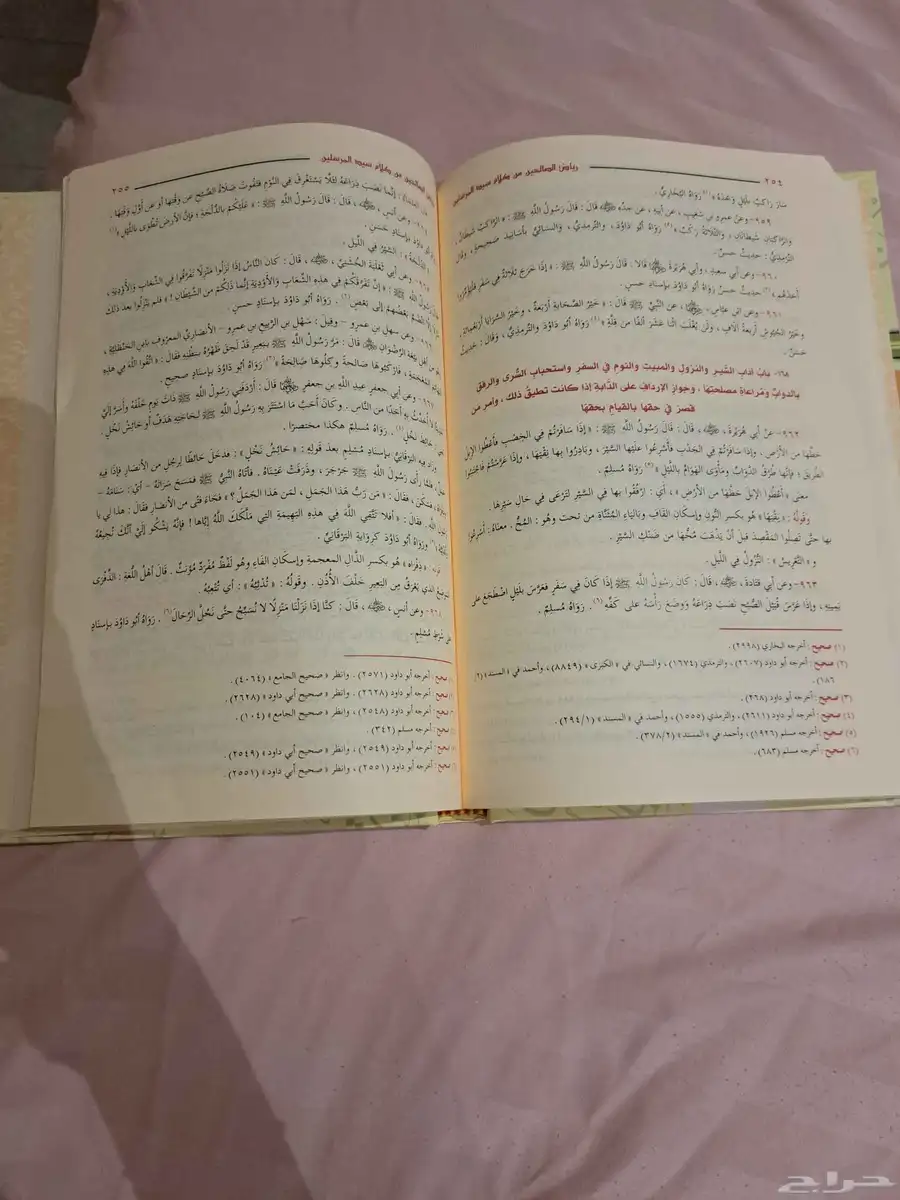 ٢٥٤ رياض الصالحين من كلام سيد المرسلين
سَارَ رَاكِبٌ بِلَيْلٍ وَحْدَهُ» رَوَاهُ البُخَارِيُّ.
٩٥٩- وعن عمرو بن شعيب، عن أبيه، عن جده ﷺ قال: قَالَ رَسُولُ اللَّهِ ﷺ: «الرَّاكِبُ شَيْطَانٌ،
وَالرَّاكِبَانِ شَيْطَانَانِ، وَالثَّلَاثَةُ رَكْبٌ» رَوَاهُ أَبُو دَاوُدَ، والترمذيُّ، والنسائيُّ بأسانيد صحيحةٍ، وقال
الترمذيُّ: حديثٌ حسنٌ.
٩٦٠- وعن أبي سعيد، وأبي هُرَيْرَةَ قالا: قَالَ رَسُولُ اللَّهِ ﷺ: «إِذَا خَرَجَ ثَلَاثَةٌ فِي سَفَرٍ فَلْيُؤَمِّرُوا
أَحَدَهُم» حديثٌ حسنٌ رَوَاهُ أَبُو دَاوُدَ بإسنادٍ حسنٍ.
٩٦١- وعن ابن عبَّاسٍ، عَنِ النَّبِيِّ ﷺ قَالَ: «خَيْرُ الصَّحَابَةِ أَرْبَعَةٌ، وَخَيْرُ السَّرَايَا أَرْبَعُمِائَةٍ،
وَخَيْرُ الجُيُوشِ أَرْبَعَةُ آلَافٍ، وَلَنْ يُغْلَبَ اثْنَا عَشَرَ أَلْفًا مِنْ قِلَّةٍ» رَوَاهُ أَبُو دَاوُدَ والترمذيُّ، وَقَالَ: حَدِيثٌ
حَسَنٌ.
١٦٨- بَابُ آدَابِ السَّيْرِ والنزولِ والمبيت والنوم في السفر واستحبابِ السُّرى والرفقِ
بالدوابِّ ومُراعاةِ مصلحتِها، وجوازِ الإردافِ على الدَّابةِ إذا كانت تطيقُ ذلك، وأمرِ من
قصرَ في حقها بالقيامِ بحقِّها
٩٦٢- عَنْ أَبِي هُرَيْرَةَ، قَالَ: قَالَ رَسُولُ اللَّهِ ﷺ: «إِذَا سَافَرْتُمْ فِي الخِصْبِ فَأَعْطُوا الإِبِلَ
حَظَّهَا مِنَ الأَرْضِ، وَإِذَا سَافَرْتُمْ فِي الجَدْبِ فَأَسْرِعُوا عَلَيْهَا السَّيْرَ، وَبَادِرُوا بِهَا نِقْيَهَا، وَإِذَا عَرَّسْتُمْ فَاجْتَنِبُوا
الطَّرِيقَ؛ فَإِنَّهَا طُرُقُ الدَّوَابِّ وَمَأْوَى الهَوَامِّ بِاللَّيْلِ» رَوَاهُ مُسْلِمٌ.
معنى «أَعْطُوا الإِبِلَ حَظَّهَا مِنَ الأَرْضِ»، أَيْ: ارْفُقُوا بِهَا فِي السَّيْرِ لِتَرْعَى فِي حَالِ سَيْرِهَا.
وَقَوْلُهُ: «نِقْيَهَا» هو بكسر النُّونِ وإسكانِ القافِ وبالياءِ المُثَنَّاةِ من تحت وهو: المُخُّ، معناهُ: أَسْرِعُوا
بها حَتَّى تَصِلُوا المَقْصِدَ قَبْلَ أَنْ يَذْهَبَ مُخُّهَا مِن ضَنْكِ السَّيْرِ.
و«التَّعْرِيسُ»: النُّزُولُ فِي اللَّيْلِ.
٩٦٣- وعن أبي قَتَادَةَ، قَالَ: كَانَ رَسُولُ اللَّهِ ﷺ إِذَا كَانَ فِي سَفَرٍ فَعَرَّسَ بِلَيْلٍ اضْطَجَعَ عَلَى
يَمِينِهِ، وَإِذَا عَرَّسَ قُبَيْلَ الصُّبْحِ نَصَبَ ذِرَاعَهُ وَوَضَعَ رَأْسَهُ عَلَى كَفِّهِ. رَوَاهُ مُسْلِمٌ.
(١) صحيح: أخرجه البخاري (٢٩٩٨).
(٢) صحيح: أخرجه أبو داود (٢٦٠٧)، والترمذي (١٦٧٤)، والنسائي في «الكبرى» (٨٨٤٩)، وأحمد في «المسند» (٢/
١٨٦).
(٣) صحيح: أخرجه أبو داود (٢٦٨).
(٤) صحيح: أخرجه أبو داود (٢٦١١)، والترمذي (١٥٥٥)، وأحمد في «المسند» (٢٩٤/١).
(٥) صحيح: أخرجه مسلم (١٩٢٦)، وأحمد في «المسند» (٣٧٨/٢).
(٦) صحيح: أخرجه مسلم (٦٨٣).
الصالحين من كلام سيد المرسلين ٢٥٥
إِنَّمَا نَصَبَ ذِرَاعَهُ لِئَلَّا يَسْتَغْرِقَ فِي النَّوْمِ فَتَفُوتَ صَلَاةُ الصُّبْحِ عَنْ وَقْتِهَا أَوْ عَنْ أَوَّلِ وَقْتِهَا.
وعن أَنَسٍ، قَالَ: قَالَ رَسُولُ اللَّهِ ﷺ: «عَلَيْكُمْ بِالدُّلْجَةِ، فَإِنَّ الأَرْضَ تُطْوَى بِاللَّيْلِ»
دَاوُدَ بإسنادٍ حَسَنٍ.
الدُّلْجَةُ»: السَّيْرُ فِي اللَّيْلِ.
وعن أبي ثَعْلَبَةَ الخُشَنِيِّ، قَالَ: كَانَ النَّاسُ إِذَا نَزَلُوا مَنْزِلًا تَفَرَّقُوا فِي الشِّعَابِ وَالأَوْدِيَةِ،
رَسُولُ اللَّهِ ﷺ: «إِنَّ تَفَرُّقَكُمْ فِي هَذِهِ الشِّعَابِ وَالأَوْدِيَةِ إِنَّمَا ذَلِكُمْ مِنَ الشَّيْطَانِ!» فَلَم يَنْزِلُوا بَعْدَ ذَلِكَ
انْضَمَّ بَعْضُهُمْ إِلَى بَعْضٍ. رَوَاهُ أَبُو دَاوُدَ بإسنادٍ حسنٍ.
وعن سهل بن عمرو – وقيل: سَهْلِ بنِ الرَّبِيعِ بنِ عمرو – الأنصاريِّ المعروفِ بابنِ الحَنْظَلِيَّةِ،
مِن أَهْلِ بَيْعَةِ الرِّضْوَانِ، قَالَ: مَرَّ رَسُولُ اللَّهِ ﷺ بِبَعِيرٍ قَدْ لَحِقَ ظَهْرُهُ بِبَطْنِهِ فَقَالَ: «اتَّقُوا اللَّهَ فِي هَذِهِ
المُعْجَمَةِ، فَارْكَبُوهَا صَالِحَةً وَكُلُوهَا صَالِحَةً» رَوَاهُ أَبُو دَاوُدَ بإسنادٍ صحيح.
وعن أبي جعفرٍ عبدِ اللَّهِ بنِ جعفرٍ قَالَ: أَرْدَفَنِي رَسُولُ اللَّهِ ﷺ ذَاتَ يَوْمٍ خَلْفَهُ وَأَسَرَّ إِلَيَّ
لَا أُحَدِّثُ بِهِ أَحَدًا مِنَ النَّاسِ، وَكَانَ أَحَبَّ مَا اسْتَتَرَ بِهِ رَسُولُ اللَّهِ ﷺ لِحَاجَتِهِ هَدَفٌ أَوْ حَائِشُ نَخْلٍ،
حَائِطَ نَخْلٍ. رَوَاهُ مُسْلِمٌ هكذا مختصرًا.
وزاد فيه البَرْقَانِيُّ بإسنادِ مُسْلِمٍ بعد قولِهِ: «حَائِشُ نَخْلٍ»: فَدَخَلَ حَائِطًا لِرَجُلٍ مِنَ الأَنْصَارِ فَإِذَا فِيهِ
فَلَمَّا رَأَى رَسُولَ اللَّهِ ﷺ جَرْجَرَ، وَذَرَفَتْ عَيْنَاهُ. فَأَتَاهُ النَّبِيُّ ﷺ فَمَسَحَ سَرَاتَهُ – أَيْ: سَنَامَهُ –
فَسَكَنَ، فَقَالَ: «مَنْ رَبُّ هَذَا الجَمَلِ، لِمَنْ هَذَا الجَمَلُ؟» فَجَاءَ فَتًى مِنَ الأَنْصَارِ فَقَالَ: هذا لي يا
رَسُولَ اللَّهِ. فَقَالَ: «أَفَلَا تَتَّقِي اللَّهَ فِي هَذِهِ البَهِيمَةِ الَّتِي مَلَّكَكَ اللَّهُ إِيَّاهَا! فَإِنَّهُ يَشْكُو إِلَيَّ أَنَّكَ تُجِيعُهُ
ورَوَاهُ أَبُو دَاوُدَ كَرِوَايَةِ البَرْقَانِيِّ.
«ذِفْرَاهُ» هو بكسر الذَّالِ المعجمةِ وإسكانِ الفَاءِ وَهُوَ لَفْظٌ مُفْرَدٌ مُؤَنَّثٌ. قَالَ أَهْلُ اللُّغَةِ: الذِّفْرَى
المَوْضِعُ الَّذِي يَعْرَقُ مِنَ البَعِيرِ خَلْفَ الأُذُنِ. وقَوْلُهُ: «تُدْئِبُهُ»: أَيْ تُتْعِبُهُ.
وعن أَنَسٍ، قَالَ: كُنَّا إِذَا نَزَلْنَا مَنْزِلًا لَا نُسَبِّحُ حَتَّى نَحُلَّ الرِّحَالَ. رَوَاهُ أَبُو دَاوُدَ بإسنادٍ
عَلَى شَرْطِ مُسْلِمٍ.
صحيح: أخرجه أبو داود (٢٥٧١)، وانظر «صحيح الجامع» (٤٠٦٤).
صحيح: أخرجه أبو داود (٢٦٢٨)، وانظر «صحيح أبي داود» (٢٦٢٨).
صحيح: أخرجه أبو داود (٢٥٤٨)، وانظر «صحيح الجامع» (١٠٤).
صحيح: أخرجه مسلم (٣٤٢).
صحيح: أخرجه أبو داود (٢٥٤٩)، وانظر «صحيح أبي داود» (٢٥٤٩).
صحيح: أخرجه أبو داود (٢٥٥١)، وانظر «صحيح أبي داود» (٢٥٥١).
حراج